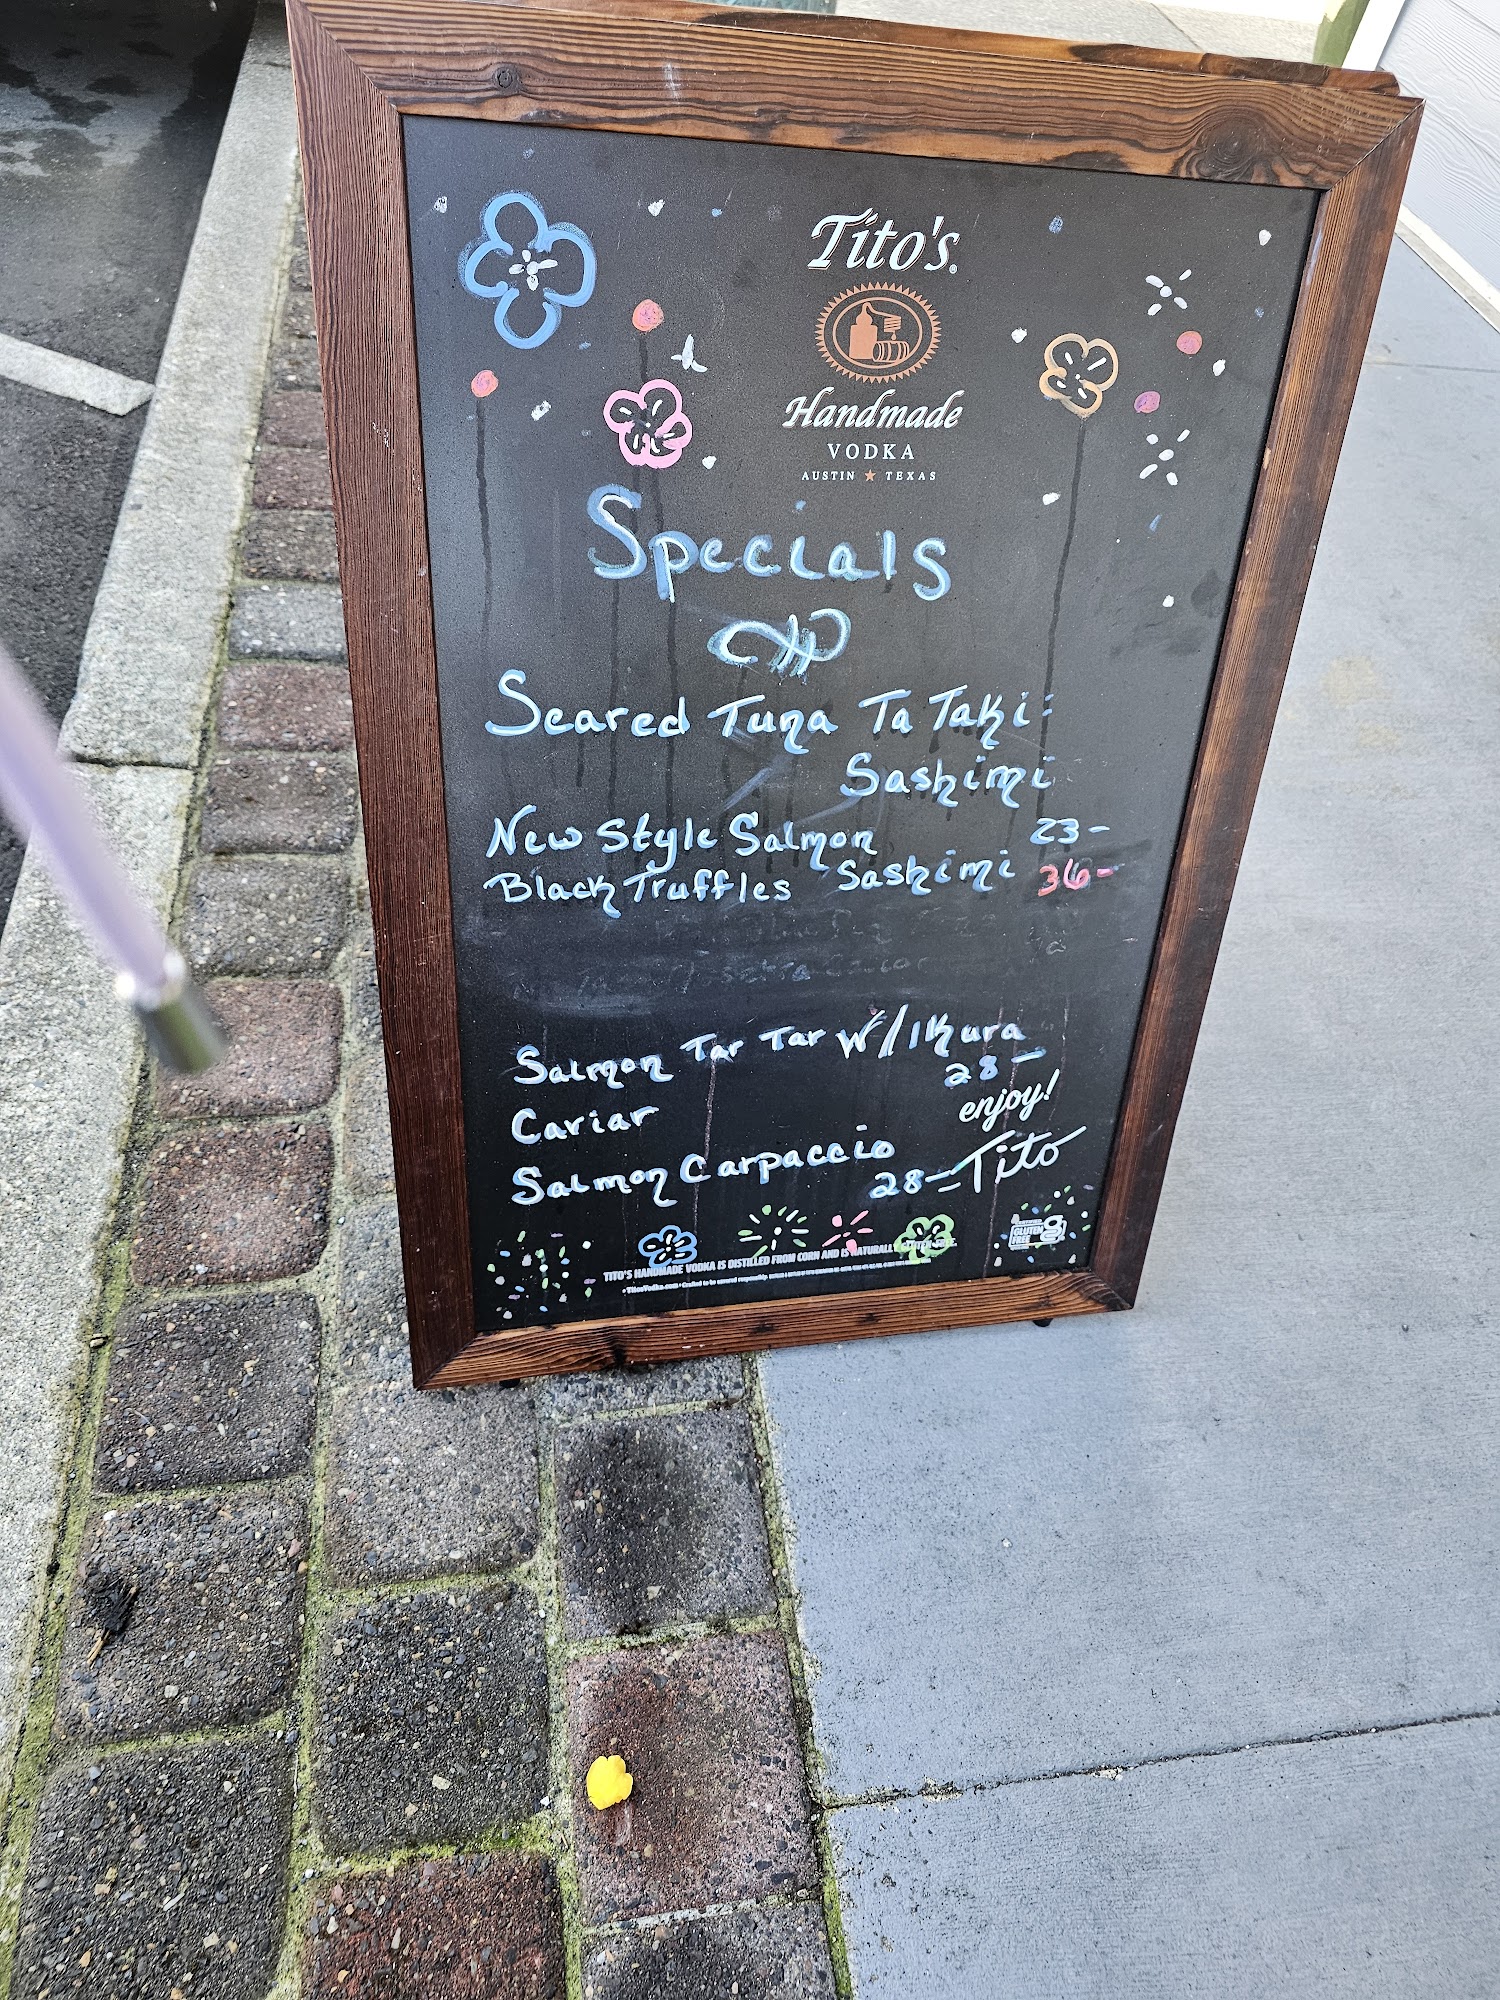 Tito's
Handmade
VODKA
AUSTIN ★ TEXAS
Specials
Seared Tuna Ta Taki
Sashimi
New Style Salmon 23-
Black Truffles Sashimi 36-
Salmon Tar Tar W/Ikura
28-
Caviar
enjoy!
Salmon Carpaccio
28- Tito
TITO'S HANDMADE VODKA IS DISTILLED FROM CORN AND IS NATURALLY
• TitosVodka.com • Crafted to be savored responsibly
GLUTEN
FREE